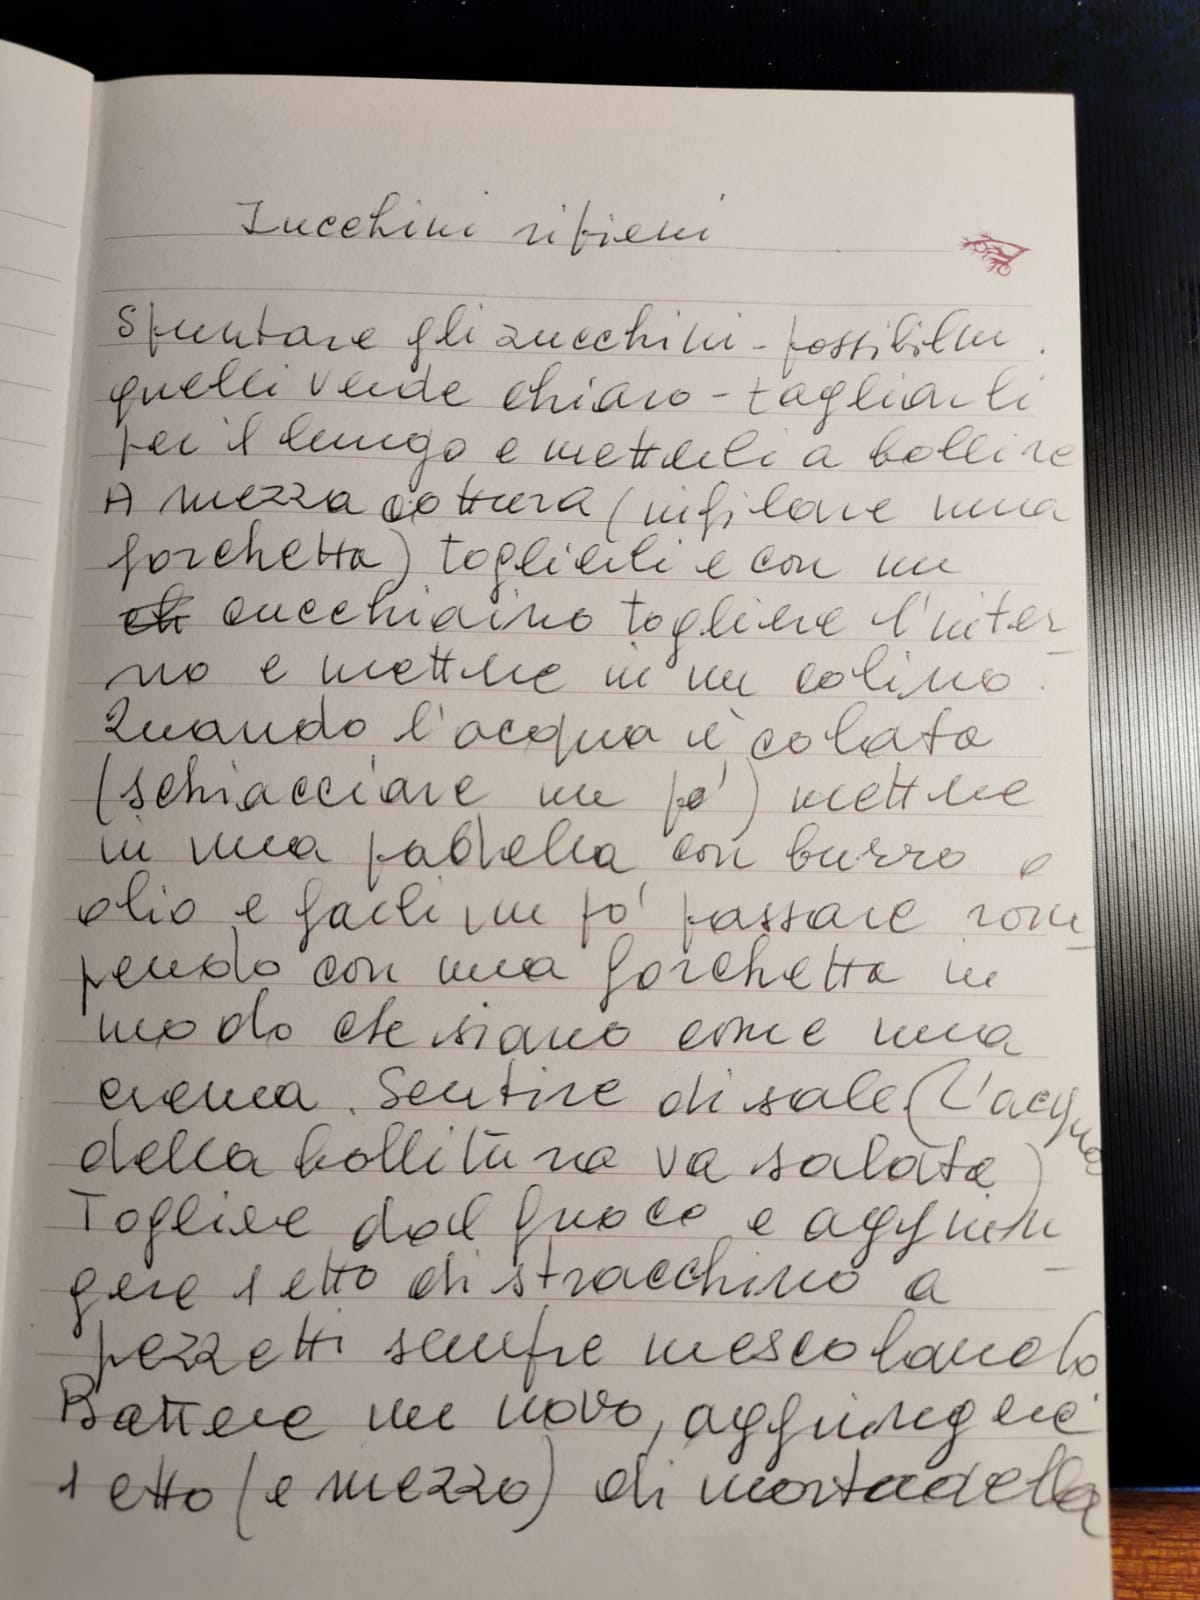 Zucchini ripieni
Spuntare gli zucchini - possibilm.
quelli verde chiaro - tagliarli
per il lungo e metterli a bollire
A mezza cottura (infilare una
forchetta) toglierli e con un
cucchiaino togliere l'inter_
no e mettere in un colino.
Quando l'acqua è colata
(schiacciare un po') mettere
in una padella con burro e
olio e farli un po' passare rom_
pendo con una forchetta in
modo che siano come una
crema. Sentire di sale (L'acqua
della bollitura va salata)
Togliere dal fuoco e aggiun_
gere 1 etto di stracchino a
pezzetti sempre mescolando
Battere un uovo, aggiungere
1 etto (e mezzo) di mortadella